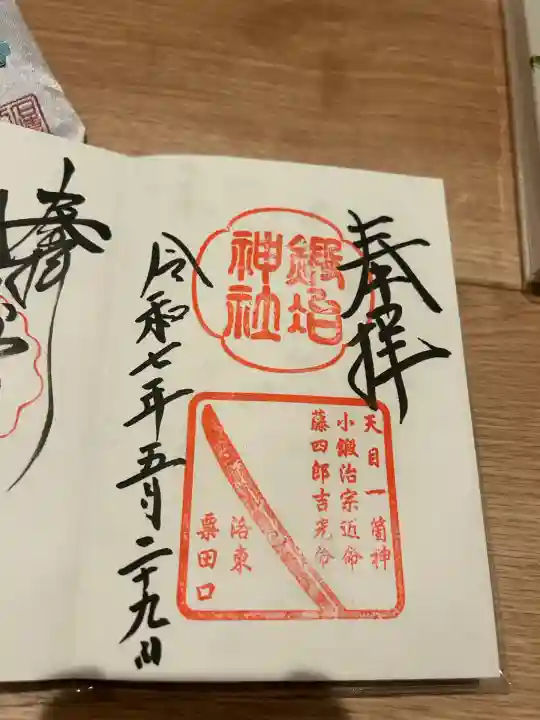 奉拝
鍛冶
神社
天目一箇神
小鍛冶宗近命
藤四郎吉光命
洛東
粟田口
令和七年五月二十九日